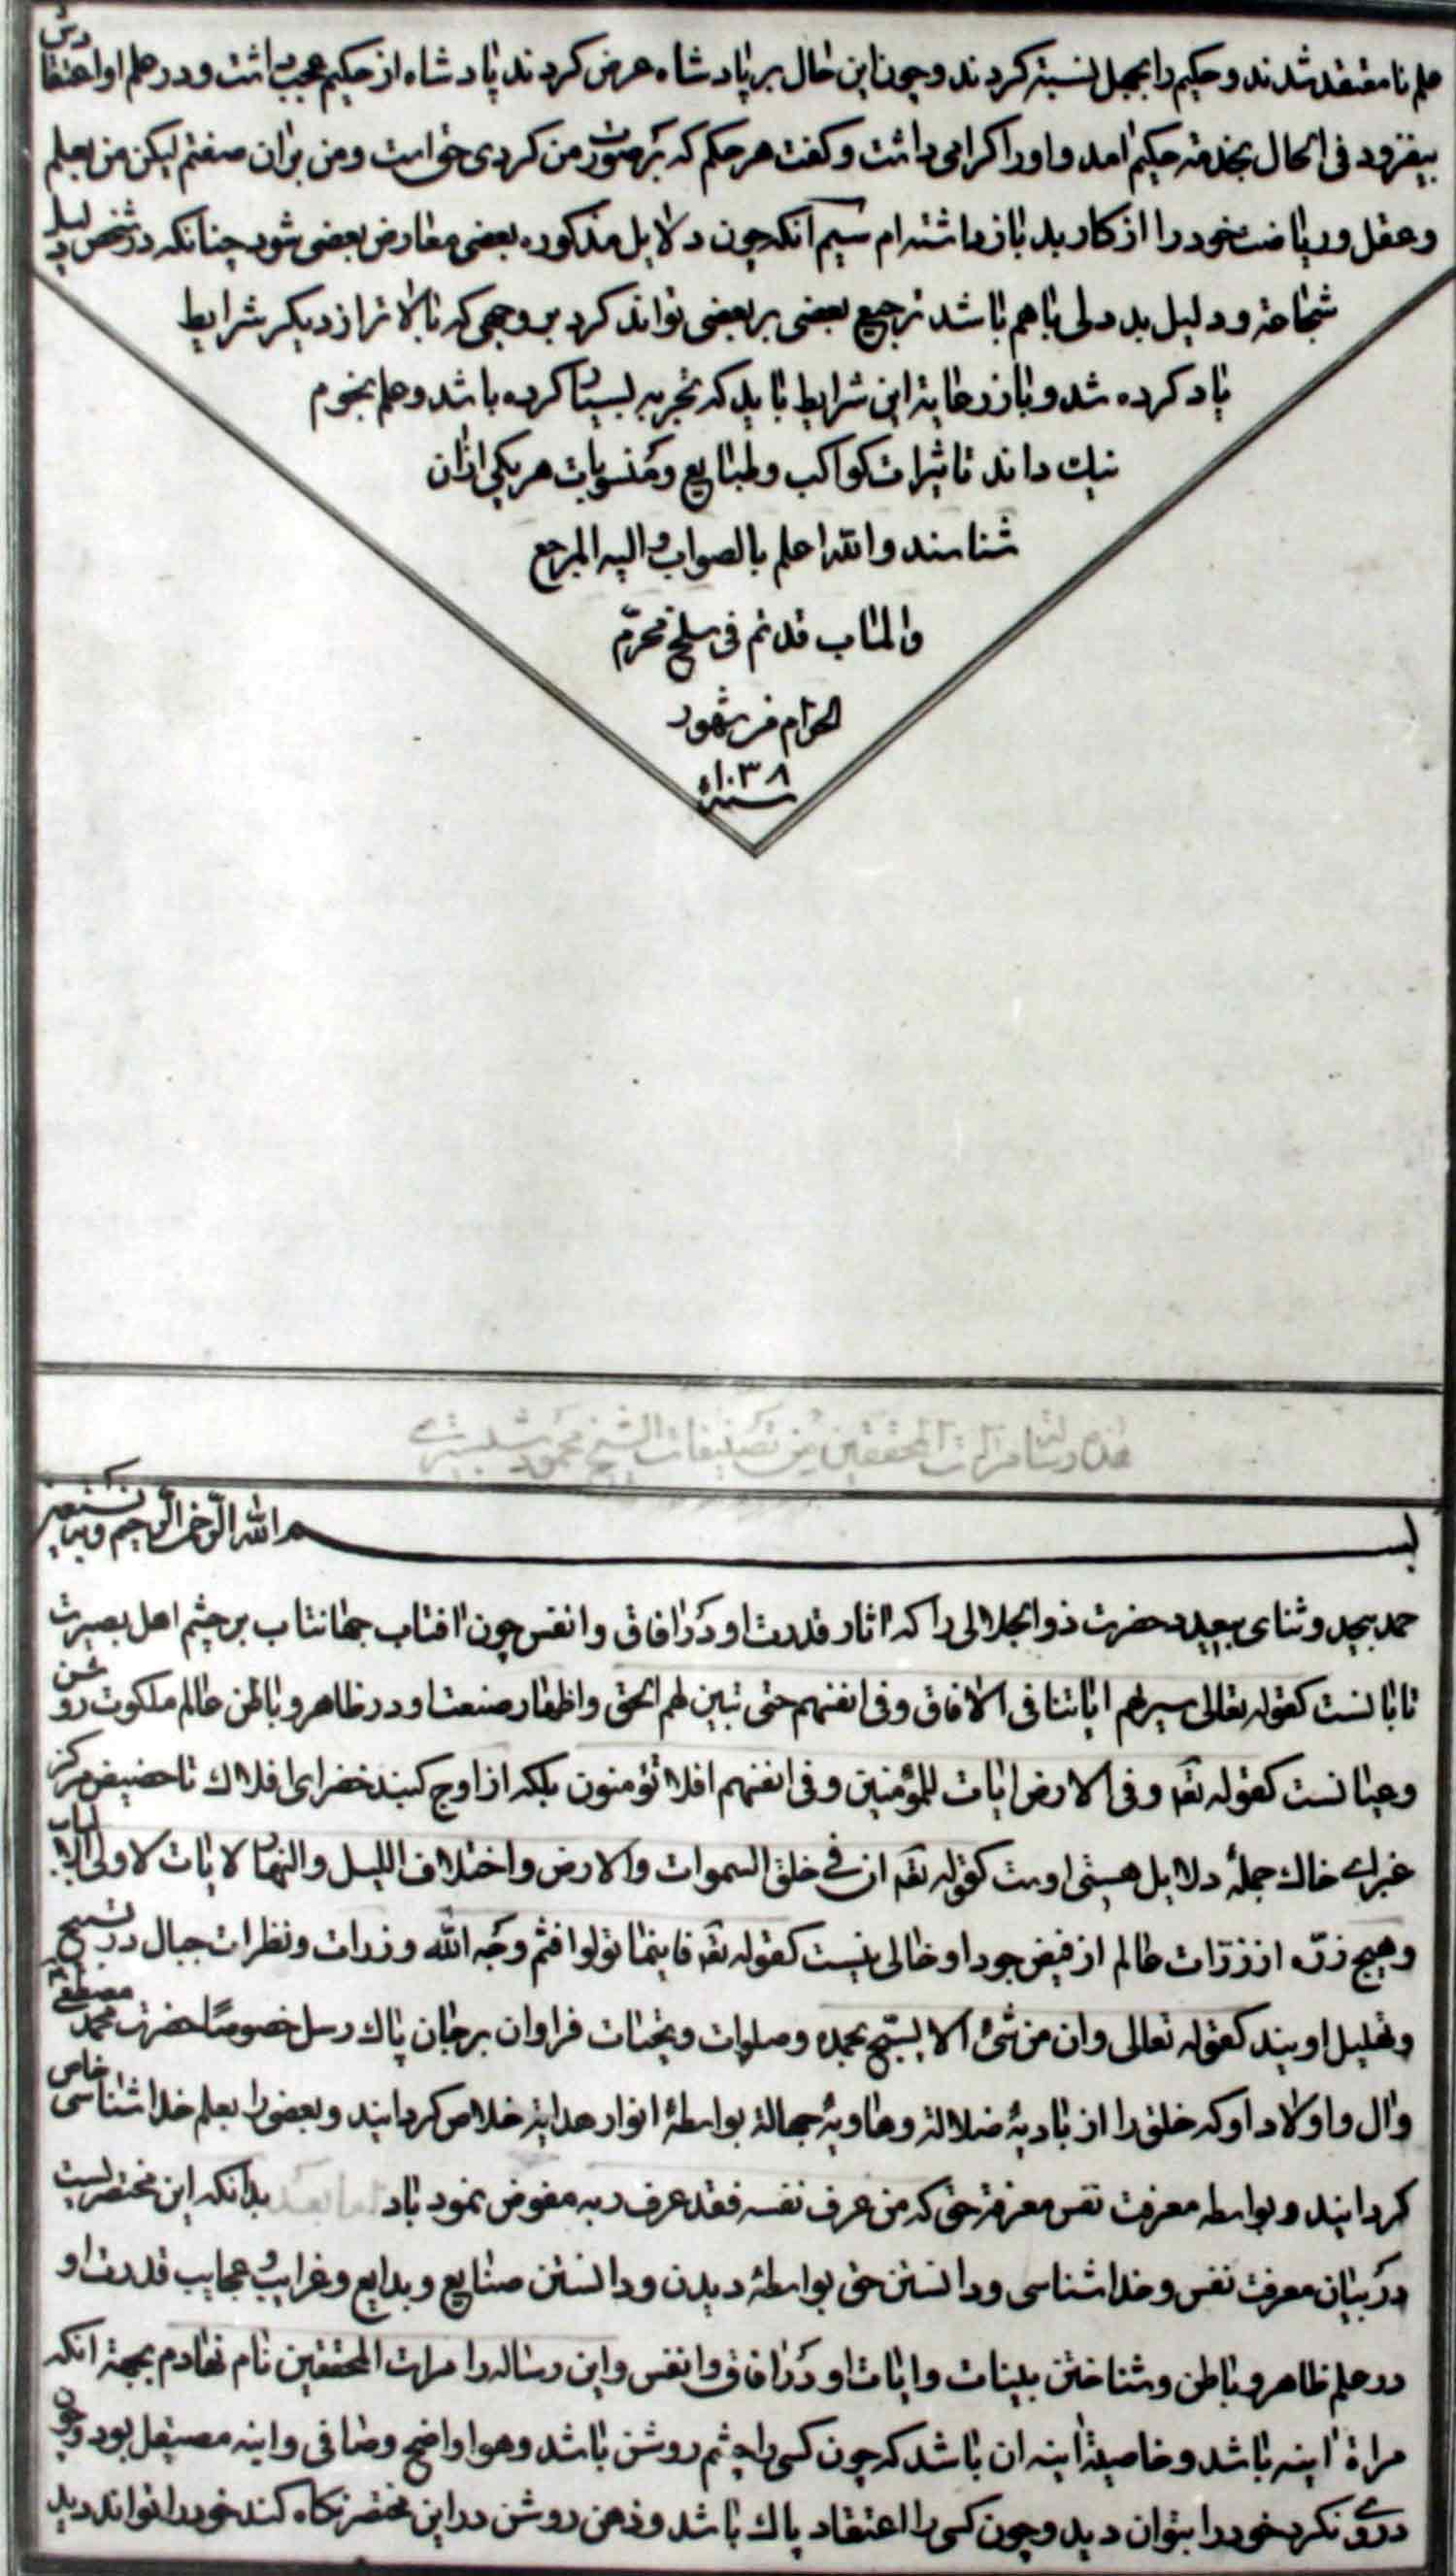 علم نامعتقد شدند و حکیم را بجهل نسبة کردند و چون این حال بر پادشاه عرض کردند پادشاه از حکیم عجب داشت و در علم او اعتقادش
بیفزود فی الحال بخدمة حکیم امد و اورا اکرامی داشت و کفت هر حکم که بر صورت من کردی حق است و من بران صفتم لیکن من بعلم
و عقل و ریاضت خود را از کار بد باز داشته ام سیم آنکه چون دلایل مذکوره بعضی معارض بعضی شود چنانکه در شخص دلیل
شجاعة و دلیل بد دلی باهم باشد ترجیح بعضی بر بعضی تواند کرد بر وجهی که بالاتر از دیکر شرایط
یاد کرده شد و باز رعایة این شرایط باید که تجربه بسیار کرده باشد و علم نجوم
نیک داند تا تاثیرات کواکب و طبایع و منسوبات هر یکی ازان
شناسند والله اعلم بالصواب و الیه المرجع
والماب قد تم فی سلخ محرّم
الحرام من شهور
سنة ١٠٣٨
هذه رسالة مرات المحققین من تصنیفات الشیخ محمود شبستری
بسم الله الرّحمن الرّحیم و به نستعین
حمد بیحد و ثنای بیعدد حضرت ذو الجلالی را که اثار قدرت او در افاق و انفس چون افتاب جهانتاب بر چشم اهل بصیرت
تابانست کقوله تعالی سیرهم ایاتنا فی الافاق و فی انفسهم حتی تبین لهم الحق و اظهار صنعت او در ظاهر و باطن عالم ملکوت روشن
و عیانست کقوله تع و فی الارض ایات للمؤمنین و فی انفسهم افلا تؤمنون بلکه از اوج کنبد خضرای افلاک تا حضیض مرکز
غبرای خاک جملهٔ دلایل هستی اوست کقوله تع ان فی خلق السموات والارض واختلاف اللیل والنهار لایات لاولی الالباب
و هیچ ذرّه از ذرّات عالم از فیض جود او خالی نیست کقوله تع فاینما تولوا فثم وجه الله و ذرات و نظرات جبال در تسبیح
و تهلیل اویند کقوله تعالی وان من شیء الا یسبّح بحمده و صلوات و تحیات فراوان بر جان پاک رسل خصوصًا حضرت محمد مصطفی
و ال و اولاد او که خلق را از بادیهٔ ضلالة و هاویهٔ جهالة بواسطهٔ انوار هدایة خلاص کردانیند و بعضی را بعلم خدا شناسی خاص
کردانیند و بواسطه معرفت نفس معرفة حق که من عرف نفسه فقد عرف ربه مفوض نمود باد اما بعد بدانکه این مختصریست
در بیان معرفت نفس و خدا شناسی و دانستن حق بواسطهٔ دیدن و دانستن صنایع و بدایع و غرایب و عجایب قدرت او
در علم ظاهر و باطن و شناختن بینات و ایات او در افاق و انفس و این رساله را مرات المحققین نام نهادم بجهة انکه
مراة اینه باشد و خاصیة اینه ان باشد که چون کسی را چشم روشن باشد و هوا واضح و صافی و اینه مصیقل بود و چون
دروی نکرد خود را بتوان دید و چون کسی را اعتقاد پاک باشد و ذهن روشن در این مختصر نکاه کند خود را تواند دید